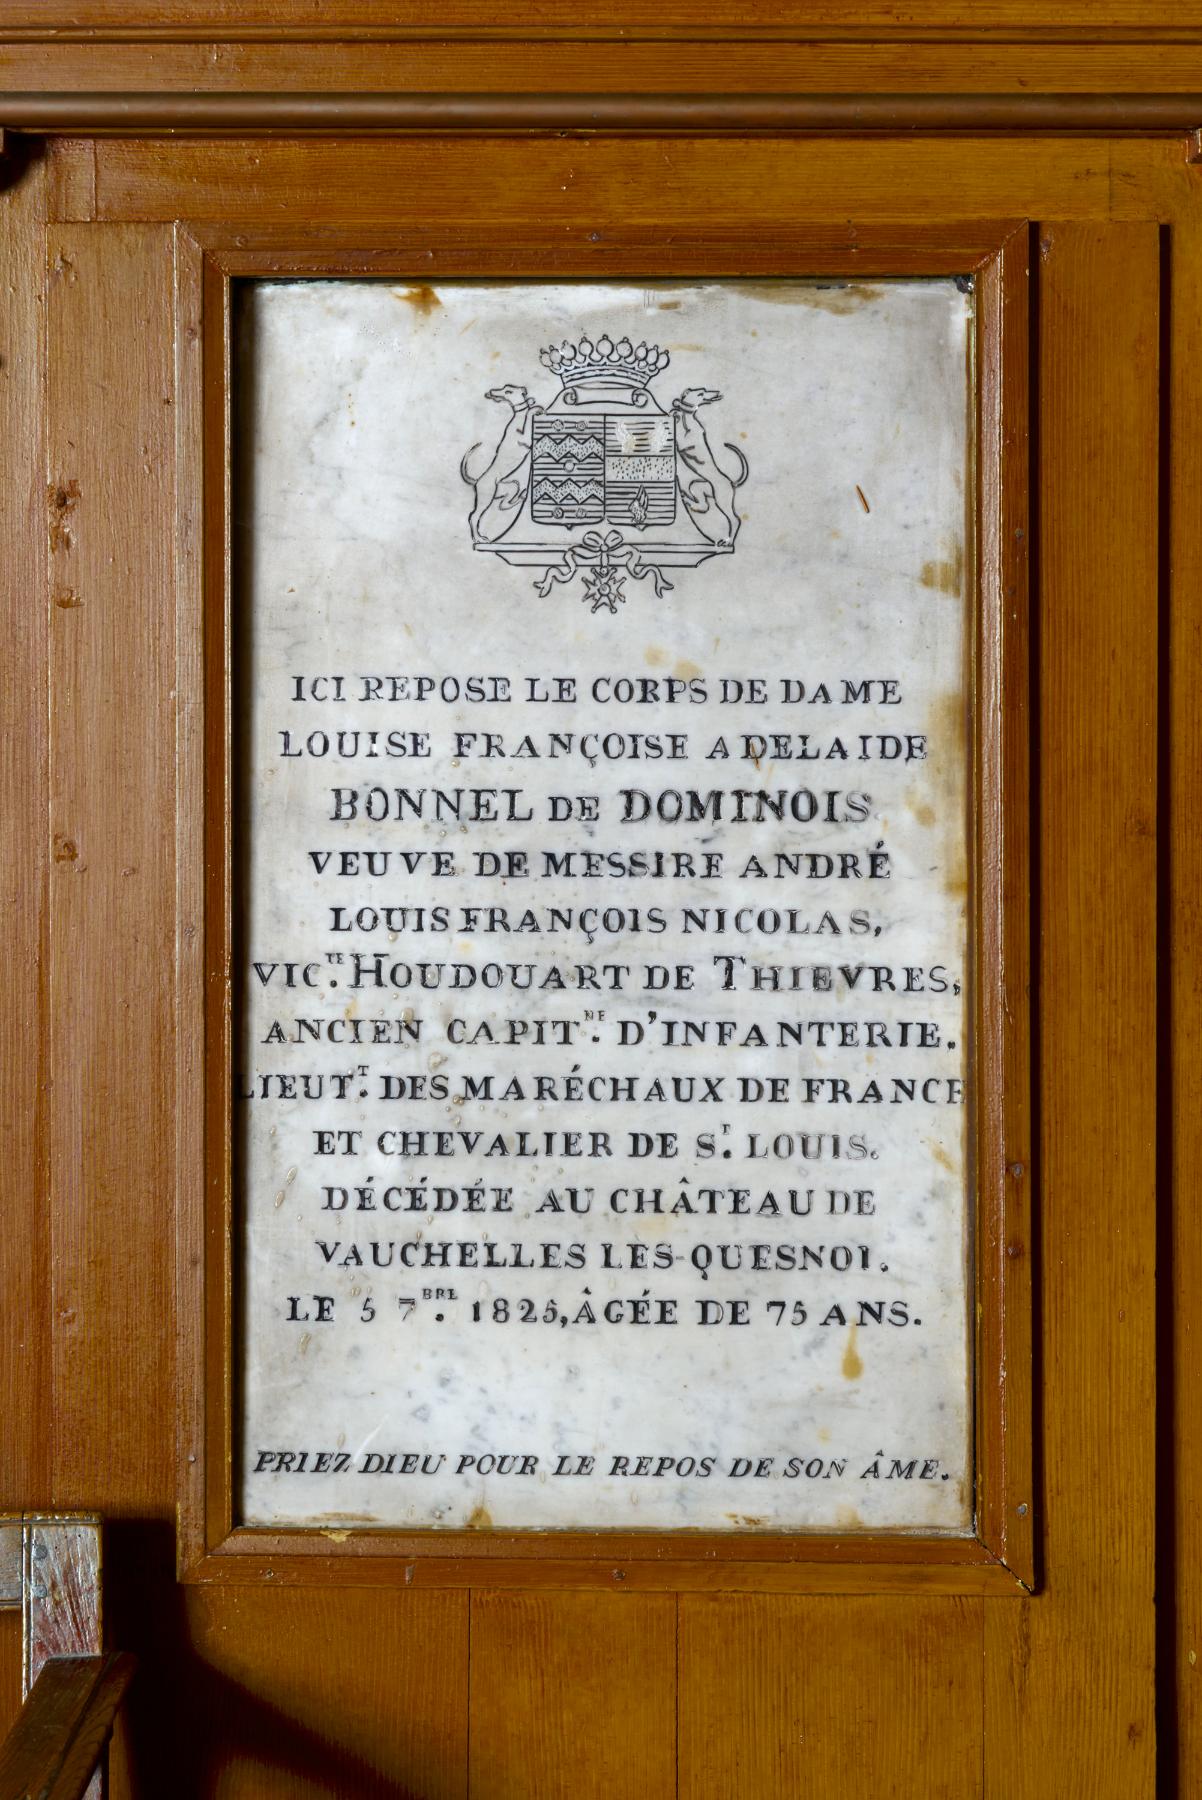 ICI REPOSE LE CORPS DE DAME
LOUISE FRANÇOISE ADELAIDE
BONNEL DE DOMINOIS
VEUVE DE MESSIRE ANDRÉ
LOUIS FRANÇOIS NICOLAS,
VIC.TE HOUDOUART DE THIEVRES,
ANCIEN CAPIT.NE D'INFANTERIE.
LIEUT.T DES MARÉCHAUX DE FRANCE
ET CHEVALIER DE S.T LOUIS.
DÉCÉDÉE AU CHÂTEAU DE
VAUCHELLES LES-QUESNOI.
LE 5 7.BRE 1825, ÂGÉE DE 75 ANS.
PRIEZ DIEU POUR LE REPOS DE SON ÂME.